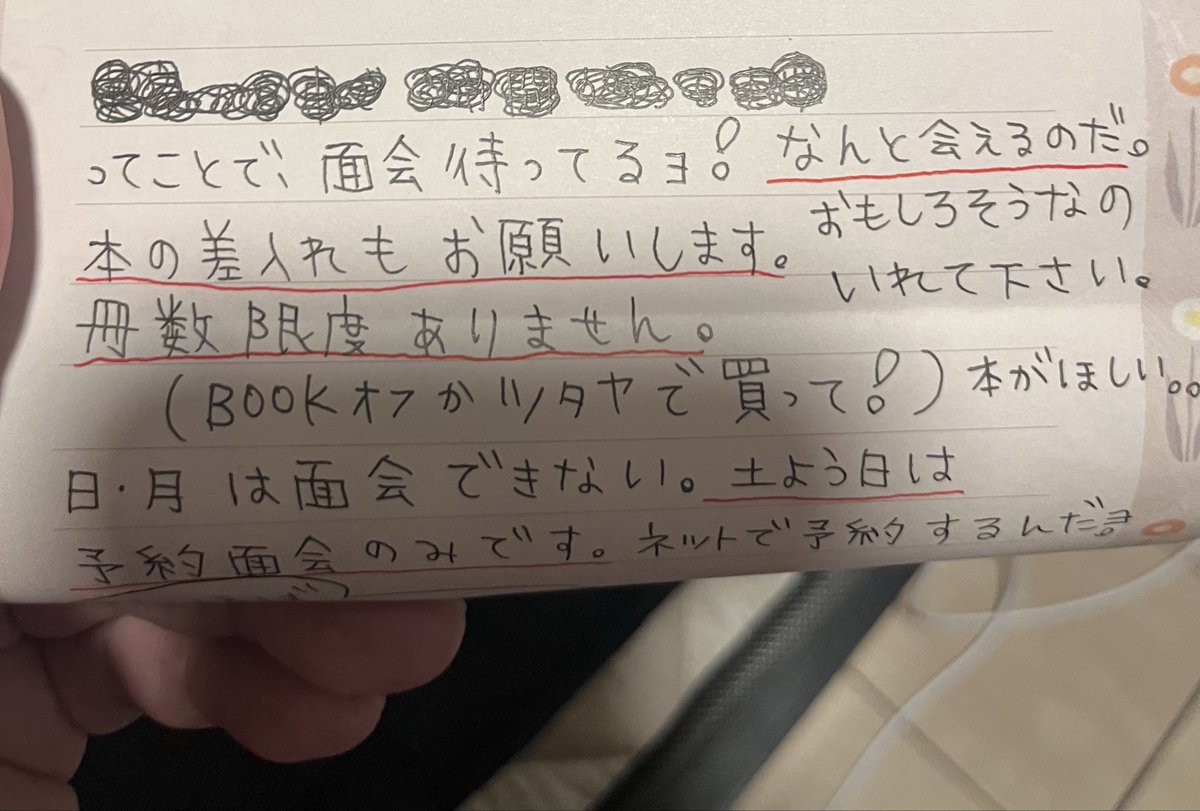 ってことで、面会待ってるヨ! なんと会えるのだ。
本の差入れもお願いします。
おもしろそうなの
いれて下さい。
冊数限度ありません。
(BOOKオフかツタヤで買って!) 本がほしい。
日・月は面会できない。土よう日は
予約面会のみです。ネットで予約するんだヨ